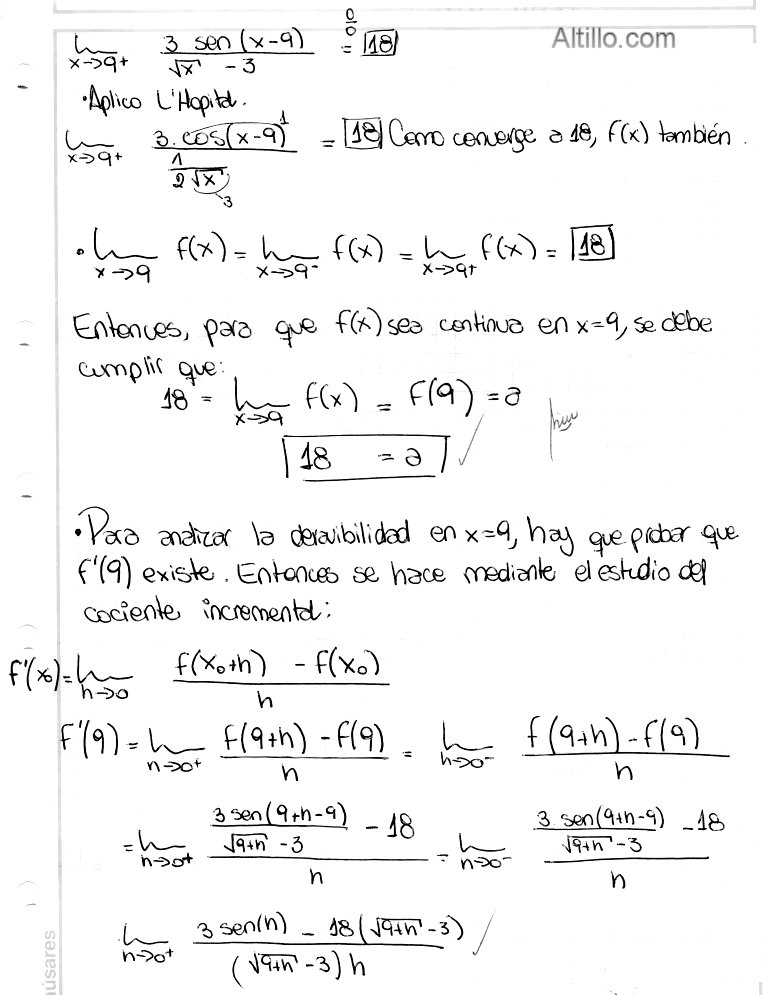 lim x→9+ 3 sen(x-9) / √x - 3 = 0/0 = 18
Altillo.com
• Aplico L'Hopital.
lim x→9+ 3.cos(x-9) 1 / 1 / 2√x 3 = 18 Como converge a 18, f(x) también.
• lim x→9 f(x) = lim x→9- f(x) = lim x→9+ f(x) = 18
Entonces, para que f(x) sea continua en x=9, se debe
cumplir que:
18 = lim x→9 f(x) = F(9) = a
18 = a ✓
• Para analizar la deravibilidad en x=9, hay que probar que
f'(9) existe. Entonces se hace mediante el estudio del
cociente incremental:
f'(x₀) = lim h→0 f(x₀+h) - f(x₀) / h
f'(9) = lim h→0+ f(9+h) - f(9) / h = lim h→0- f(9+h) - f(9) / h
= lim h→0+ 3 sen(9+h-9) / √9+h - 3 - 18 / h = lim h→0- 3 sen(9+h-9) / √9+h - 3 - 18 / h
lim h→0+ 3 sen(h) - 18(√9+h - 3) / (√9+h - 3) h ✓
úsares